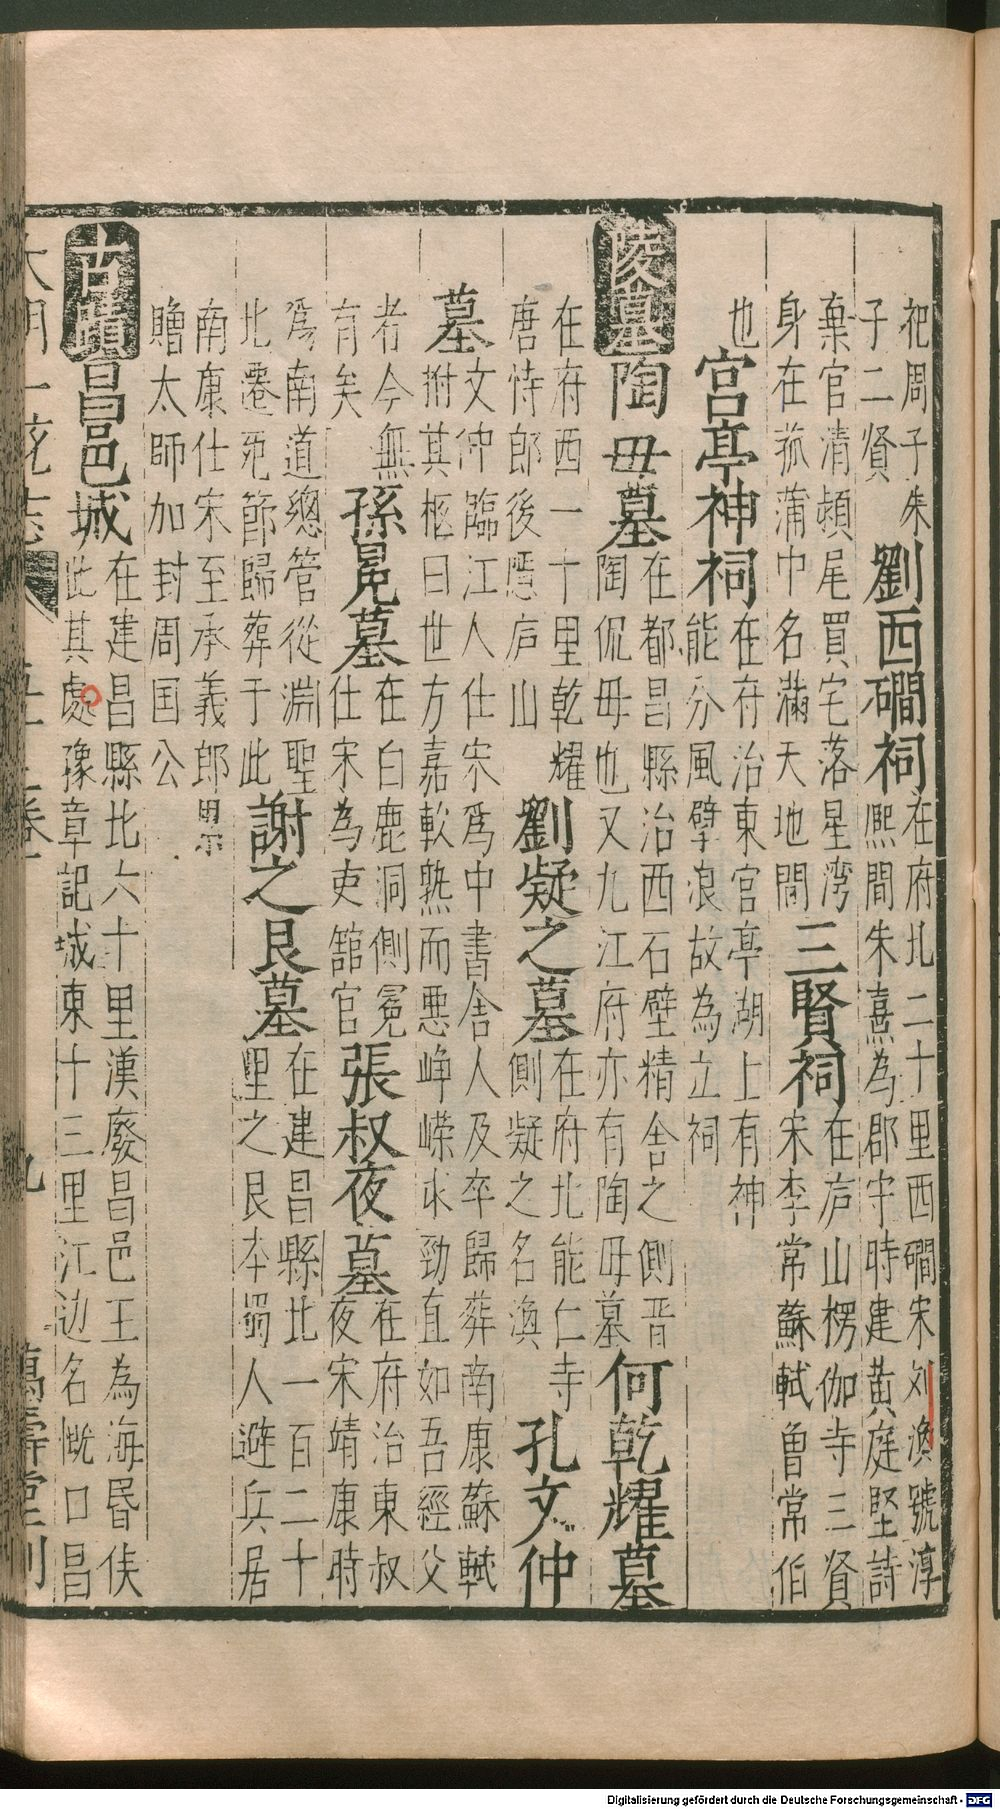 祀周子朱
子二賢
劉西磵祠
在府北二十里西磵宋刘渙號淳
熈間朱熹為郡守時建黄庭堅詩
棄官清頴尾買宅落星湾
身在菰蒲中名滿天地間
三賢祠
在庐山楞伽寺三賢
宋李常蘇軾曾常佰
也
宫亭神祠
在府治東宫亭湖上有神
能分風擘浪故為立祠
陵墓
陶母墓
在都昌縣治西石壁精舎之側晋
陶侃母也又九江府亦有陶毋墓
何乾耀墓
在府西一十里乾耀
唐恃郎後隱庐山
劉凝之墓
在府北能仁寺
側凝之名渙
孔文仲
墓
文仲臨江人仕宋爲中書舎人及卒歸葬南康蘇軾
拊其柩曰世方嘉軟熟而悪峥嶸求勁直如吾經父
者今無
有矣
孫冕墓
在白鹿洞側冕
仕宋為吏舘官
張叔夜墓
在府治東叔
夜宋靖康時
爲南道總管從淵聖
北遷死節歸葬于此
謝之艮墓
在建昌縣北一百二十
里之艮本蜀人避兵居
南康仕宋至承義郎
贈太師加封周国公
古蹟
昌邑城
在建昌縣北六十里漢廢昌邑王為海昏侯
此其處豫章記城東十三里江边名慨口昌
大明一统志
九
萬壽堂刊
Digitalisierung gefördert durch die Deutsche Forschungsgemeinschaft - DFG